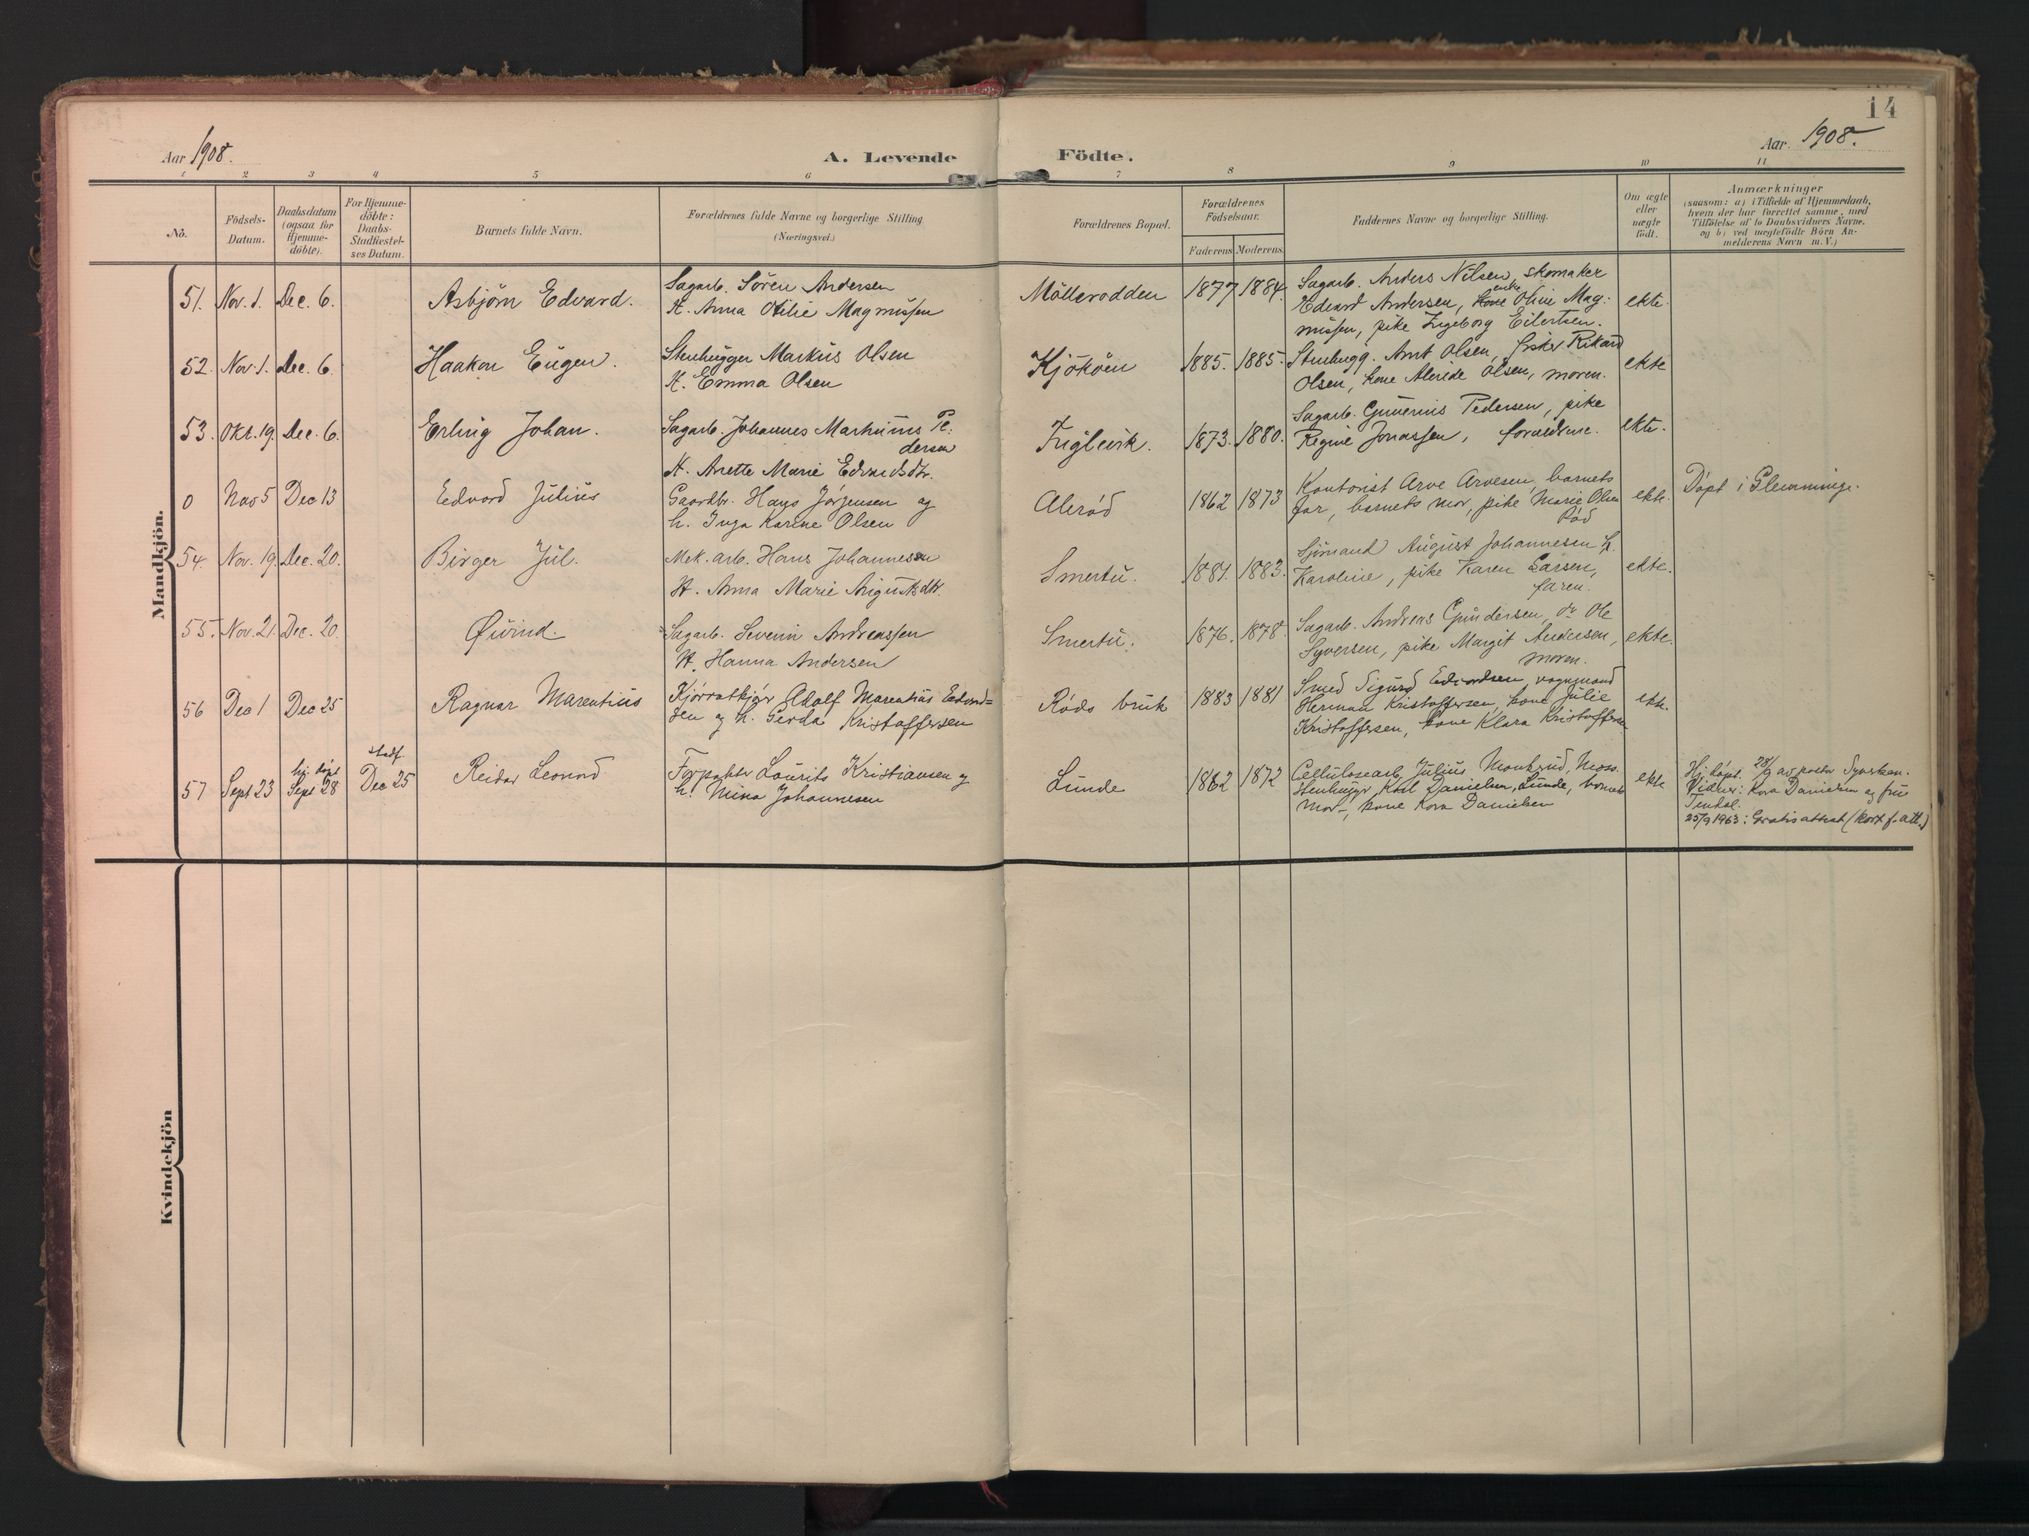 14
Aar 1908.
A. Levende Födte.
Aar. 1908.
1 2 3 4 5 6 7 8 9 10 11
No.
Födsels-
Datum.
Daabsdatum
(ogsaa for
Hjemme-
döbte).
For Hjemme-
döbte:
Daabs-
Stadfæstel-
ses Datum.
Barnets fulde Navn.
Forældrenes fulde Navne og borgerlige Stilling
(Næringsvei.)
Forældrenes Bopæl.
Forældrenes
Födselsaar.
Faderens Moderens.
Faddernes Navne og borgerlige Stilling.
Om ægte
eller
uægte
födt.
Anmærkninger
(saasom: a) i Tilfælde af Hjemmedaab,
hvem der har forrettet samme, med
Tilföielse af to Daabsvidners Navne.
og b) ved uægtefödte Börn An-
melderens Navn m. V.)
Mandkjön.
51. Nov. 1. Dec. 6. Asbjörn Edvard.
Sagarb. Sören Andersen
H. Anna Otilie Magnussen
Möllerodden 1877 1884.
Sagarb. Anders Nilsen, skomaker
Edvard Andersen, enke Olive Mag-
nussen, pike Ingeborg Eilertsen.
ekte.
52. Nov. 1. Dec. 6. Haakon Eugen.
Stenhugger Markus Olsen
H. Emma Olsen
Kjököen 1885. 1885.
Stenhugg. Arnt Olsen, fisker Rikard
Olsen, kone Olsen, moren.
ekte
53. Okt. 19. Dec. 6. Erling Johan.
Sagarb. Johannes Markuus Pe-
dersen
H. Anette Marie Edvardsdtr.
1873. 1880.
Sagarb. Pedersen, pike
Regine Jonassen, foreldrene.
ekte.
0 Nov 5 Dec 13 Edvard Julius
Gaardbr. Hans Jørgensen og
h. Inga Karine Olsen
Alerød 1862 1873
Kontorist Arve Arvesen, barnets
far, barnets mor, pike Marie Olsen
Rød
ekte.
Døpt i Glemminge.
54. Nov. 19. Dec. 20. Birger Jul.
Mek. arb. Hans Johannesen
H. Anna Marie Augustsdtr.
Smertu. 1881. 1883.
Sjömand August Johannesen, H.
Karoline, pike Karen Larsen,
faren.
ekte.
55. Nov. 21. Dec. 20. Øivind.
Sagarb. Severin Andreassen
H. Hanna Andersen
Smertu. 1876. 1878.
Sagarb. Andreas Gundersen, do Ole
Syversen, pike Margit Andersen,
moren.
ekte.
56 Dec 1 Dec 25 Ragnar Marentius
Kjørratkjør Adolf Marentius Edvard-
sen og h. Gerda Kristoffersen
Røds bruk 1883 1881
Smed Sigurd Edvardsen, vognmand
Herman Kristoffersen, kone Julie
Kristoffersen, kone Klara Kristoffersen
ekte.
57 Sept 23 hj. døpt
Sept 28
stadf
Dec 25
Reidar Leonard
Forpakter Laurits Kristiansen og
h. Mina Johannesen
Lunde 1862 1872
Cellulosearb. Julius Monkrud, Moss.
Stenhugger Karl Danielsen, Lunde, barnets
mor, kone Kara Danielsen
ekte
Hj. døpt 28/9 av
Vidner: Kara Danielsen og fru
Tendal.
25/9 1963: Gratis attest (kort f. att.)
Kvindekjön